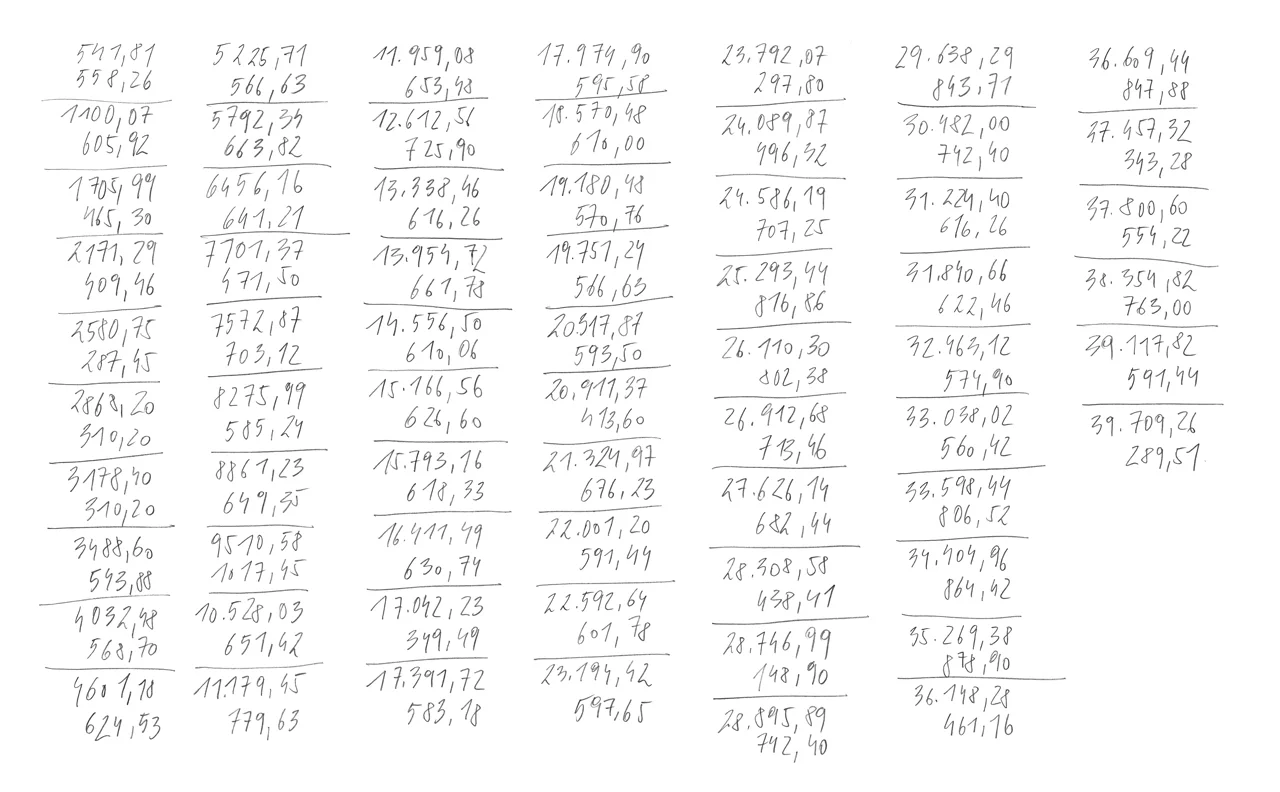 541,81
558,26
1100,07
605,92
1705,99
465,30
2171,29
409,46
2580,75
287,45
2868,20
310,20
3178,40
310,20
3488,60
543,88
4032,48
568,70
4601,18
624,53
5225,71
566,63
5792,34
663,82
6456,16
641,21
7101,37
471,50
7572,87
703,12
8275,99
585,24
8861,23
649,35
9510,58
1017,45
10.528,03
651,42
11.179,45
779,63
11.959,08
653,48
12.612,56
725,90
13.338,46
616,26
13.954,72
661,78
14.556,50
610,06
15.166,56
626,60
15.793,16
618,33
16.411,49
630,74
17.042,23
349,49
17.391,72
583,18
17.974,90
595,58
18.570,48
610,00
19.180,48
570,76
19.751,24
566,63
20317,87
593,50
20.911,37
413,60
21.324,97
676,23
22.001,20
591,44
22.592,64
601,78
23.194,42
597,65
23.792,07
297,80
24.089,87
496,32
24.586,19
707,25
25.293,44
816,86
26.110,30
802,38
26.912,68
713,46
27.626,14
682,44
28.308,58
438,41
28.746,99
148,90
28.895,89
742,40
29.638,29
843,71
30.482,00
742,40
31.224,40
616,26
31.840,66
622,46
32.463,12
574,90
33.038,02
560,42
33.598,44
806,52
34.404,96
864,42
35.269,38
878,90
36.148,28
461,16
36.609,44
847,88
37.457,32
343,28
37.800,60
554,22
38.354,82
763,00
39.117,82
591,44
39.709,26
289,51